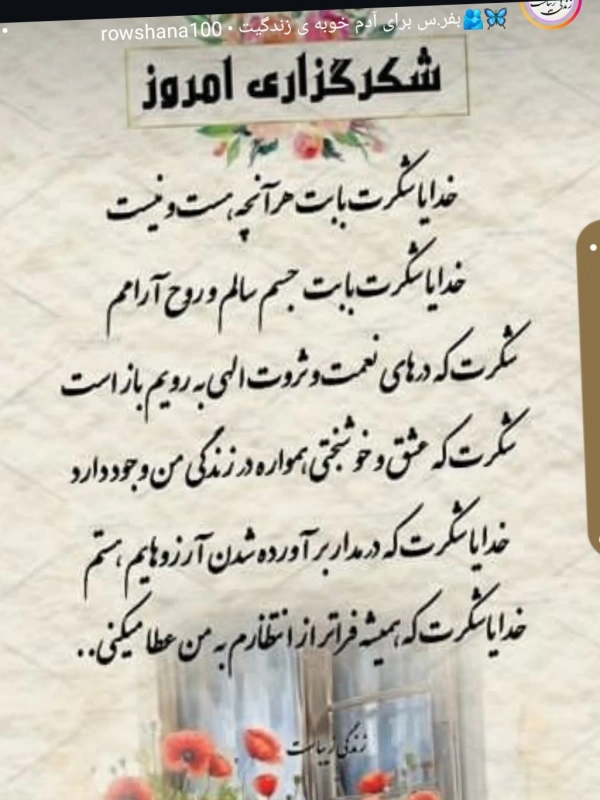 بفرس برای آدم خوبه ی زندگیت • rowshana100
شکرگزاری امروز
خدایا شکرت بابت هر آنچه هست و نیست
خدایا شکرت بابت جسم سالم و روح آرامم
شکرت که درهای نعمت و ثروت الهی به رویم باز است
شکرت که عشق و خوشبختی همواره در زندگی من وجود دارد
خدایا شکرت که در مدار برآورده شدن آرزوهایم هستم
خدایا شکرت که همیشه فراتر از انتظارم به من عطا میکنی..
زندگی زیباست